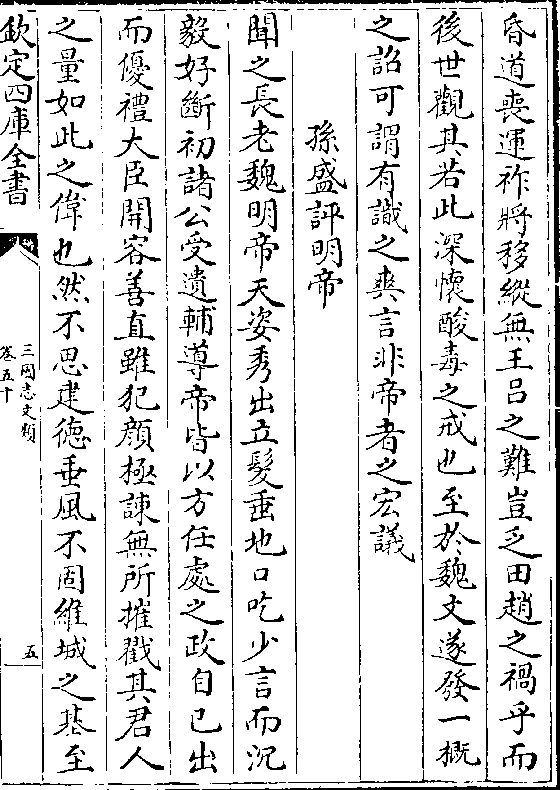 昏道喪運祚將移縱無王吕之難豈乏田趙之禍乎而
後世觀其若此深懷酸毒之戒也至於魏文遂發一槪
之詔可謂有識之爽言非帝者之宏議
孫盛評明帝
聞之長老魏明帝天姿秀出立髮垂地口吃少言而沉
毅好斷初諸公受遺輔導帝皆以方任處之政自已出
而優禮大臣開容善直雖犯顔極諫無所摧戮其君人
之量如此之偉也然不思建德垂風不固維城之基至
欽定四庫全書
三國志文類
卷五十
五